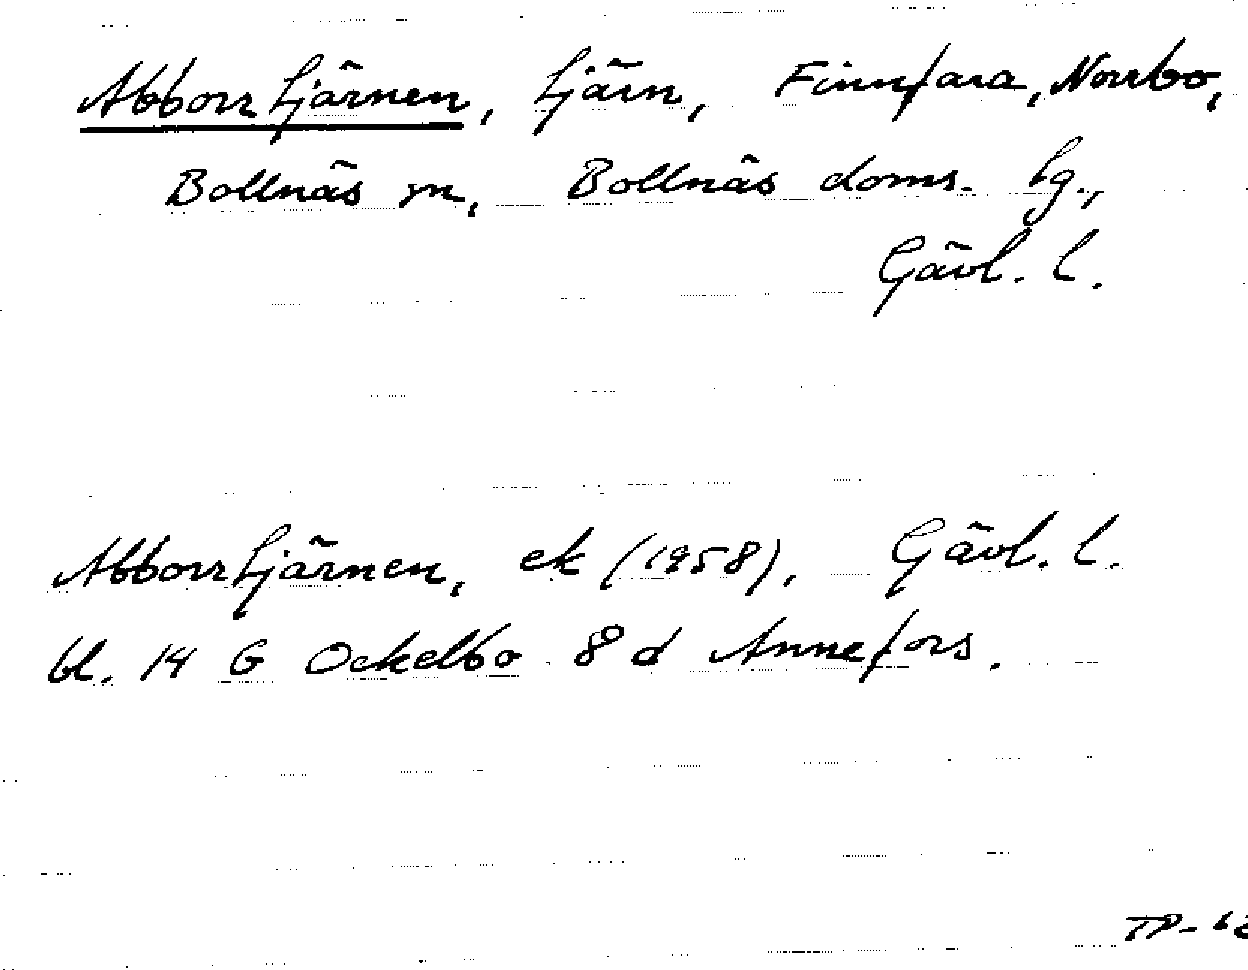 Abborrtjärnen, tjärn, Finnfara, Norrbo,
Bollnäs sn, Bollnäs doms. tg.,
Gävl. l.
Abborrtjärnen, ek (1958), Gävl. l.
bl. 14 G Ockelbo 8 d Annefors.